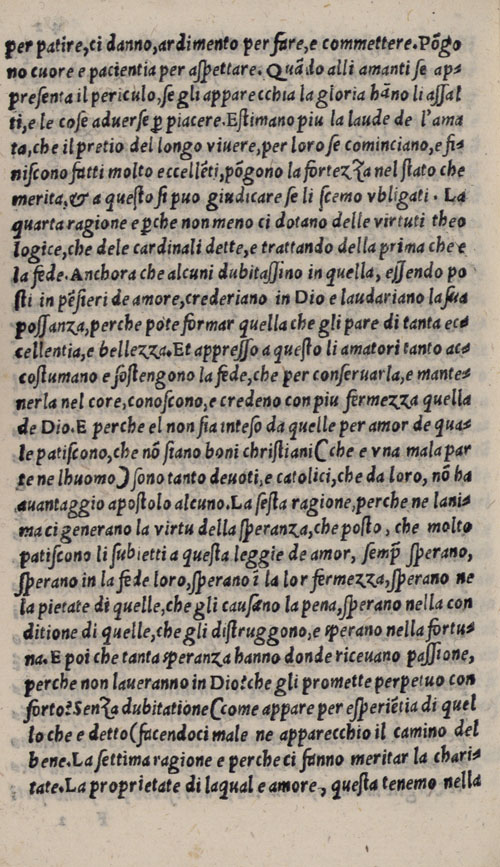 per patire, ci danno, ardimento per fare, e commettere. Põgo
no cuore e pacientia per aſpettare. Quãdo alli amanti ſe ap-
preſenta il periculo, ſe gli apparecchia la gloria hãno li aſſal
ti, e le coſe aduerſe ꝑ piacere. Eſtimano piu la laude de l'ama
ta, che il pretio del longo viuere, per loro ſe cominciano, e fi-
niſcono fatti molto eccellẽti, põgono la fortezza nel ſtato che
merita, & a queſto ſi puo giudicare ſe li ſcemo vbligati. La
quarta ragione e ꝑche non meno ci dotano delle virtuti theo
logice, che dele cardinali dette, e trattando della prima che e
la fede. Anchora che alcuni dubitaſſino in quella, eſſendo po
ſti in pẽſieri de amore, crederiano in Dio e laudariano la ſua
poſſanza, perche pote formar quella che gli pare di tanta ec-
cellentia, e bellezza. Et appreſſo a queſto li amatori tanto ac-
coſtumano e ſoſtengono la fede, che per conſeruarla, e mante-
nerla nel core, conoſcono, e credeno con piu fermezza quella
de Dio. E perche el non ſia inteſo da quelle per amor de qua-
le patiſcono, che nõ ſiano boni chriſtiani (che e vna mala par
te ne lhuomo) ſono tanto deuoti, e catolici, che da loro, nõ ha
auantaggio apoſtolo alcuno. La ſeſta ragione, perche ne lani-
ma ci generano la virtu della ſperanza, che poſto, che molto
patiſcono li ſubietti a queſta leggie de amor, ſemp̃ ſperano,
ſperano in la fede loro, ſperano ĩ la lor fermezza, ſperano ne
la pietate di quelle, che gli cauſano la pena, ſperano nella con
ditione di quelle, che gli diſtruggono, e sperano nella fortu-
na. E poi che tanta speranza hanno donde riceuano paſſione,
perche non laueranno in Dio? che gli promette perpetuo con
forto? Senza dubitatione (come appare per eſperiẽtia di quel
lo che e detto (facendoci male ne apparecchio il camino del
bene. La ſettima ragione e perche ci fanno meritar la chari-
tate. La proprietate di laqual e amore, queſta tenemo nella